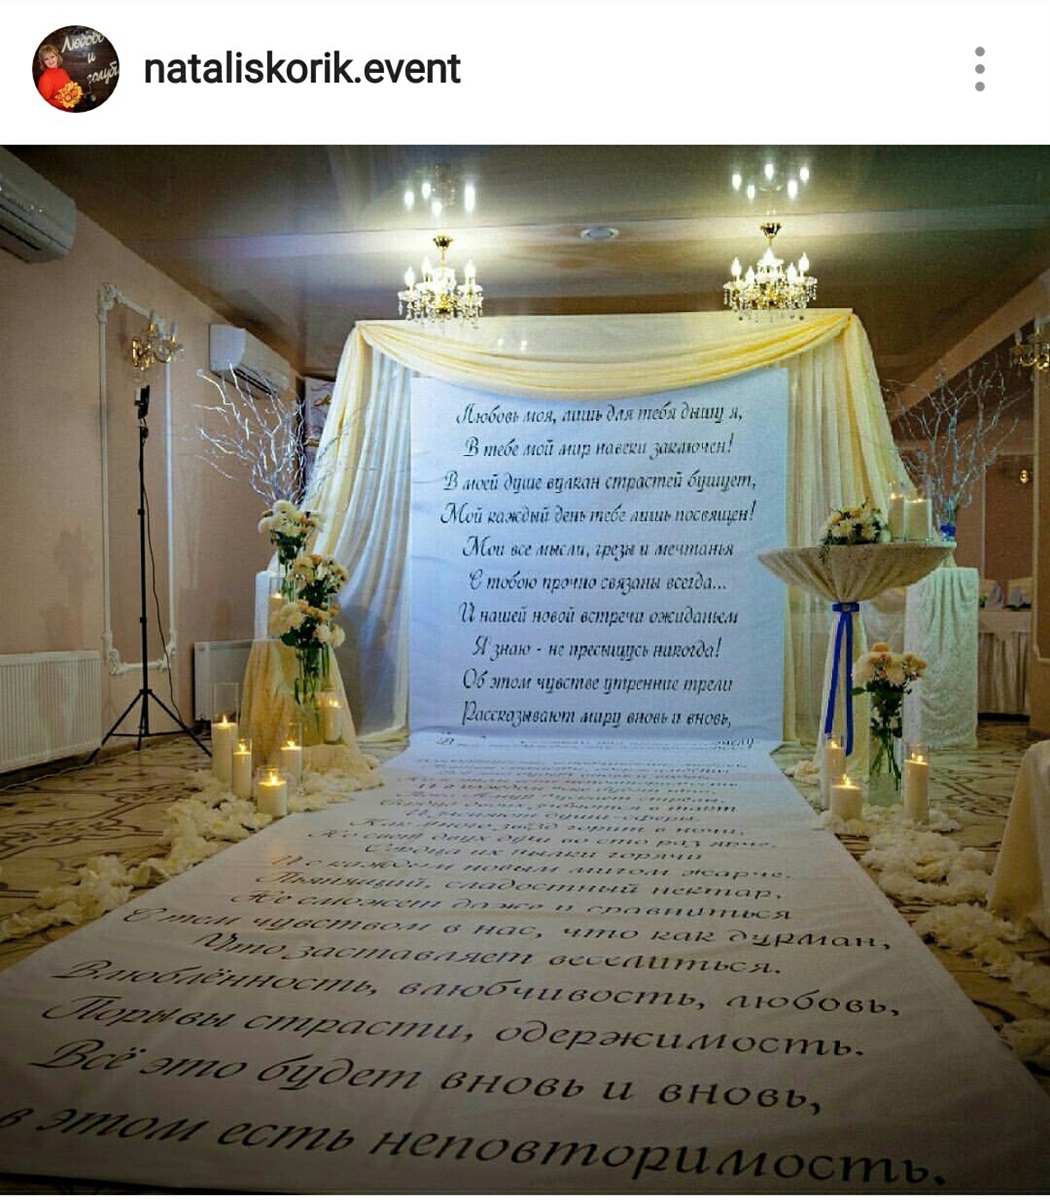 Любовь
и
голуби
nataliskorik.event
Любовь моя, лишь для тебя дышу я,
В тебе мой мир навеки заключен!
В моей душе вулкан страстей бушует,
Мой каждый день тебе лишь посвящен!
Мои все мысли, грезы и мечтанья
С тобою прочно связаны всегда...
И нашей новой встречи ожиданьем
Я знаю - не пресыщусь никогда!
Об этом чувстве утренние трели
Рассказывают миру вновь и вновь,
Как много звёзд горит в ночи.
Но свет двух душ во сто раз ярче.
Сердца их пылки горячи
И с каждым новым мигом жарче.
Пьянящий, сладостный нектар,
Не сможет даже и сравниться
С тем чувством в нас, что как дурман,
Что заставляет веселиться.
Влюблённость, влюбчивость, любовь,
Порывы страсти, одержимость.
Всё это будет вновь и вновь,
в этом есть неповторимость.